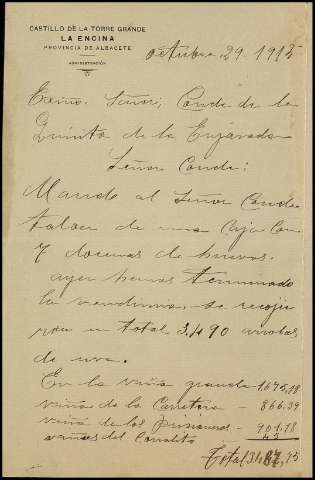 CASTILLO DE LA TORRE GRANDE
LA ENCINA
PROVINCIA DE ALBACETE
ADMINISTRACIÓN
octubre 29-1915
Exmo. Señor, Conde de la
Quinta de la Enjarada
Señor Conde:
Mando al Señor Conde
talon de una Caja Con
7 docenas de huevos.
ayer hemos terminado
la vendimia, se recojie
ron en total 3,490 arrobas
de uva.
En la viña grande 1675,18
viña de la Carretera - 866,39
viña de los - 901,18
viñas del Corralito 45
Total 3487,75